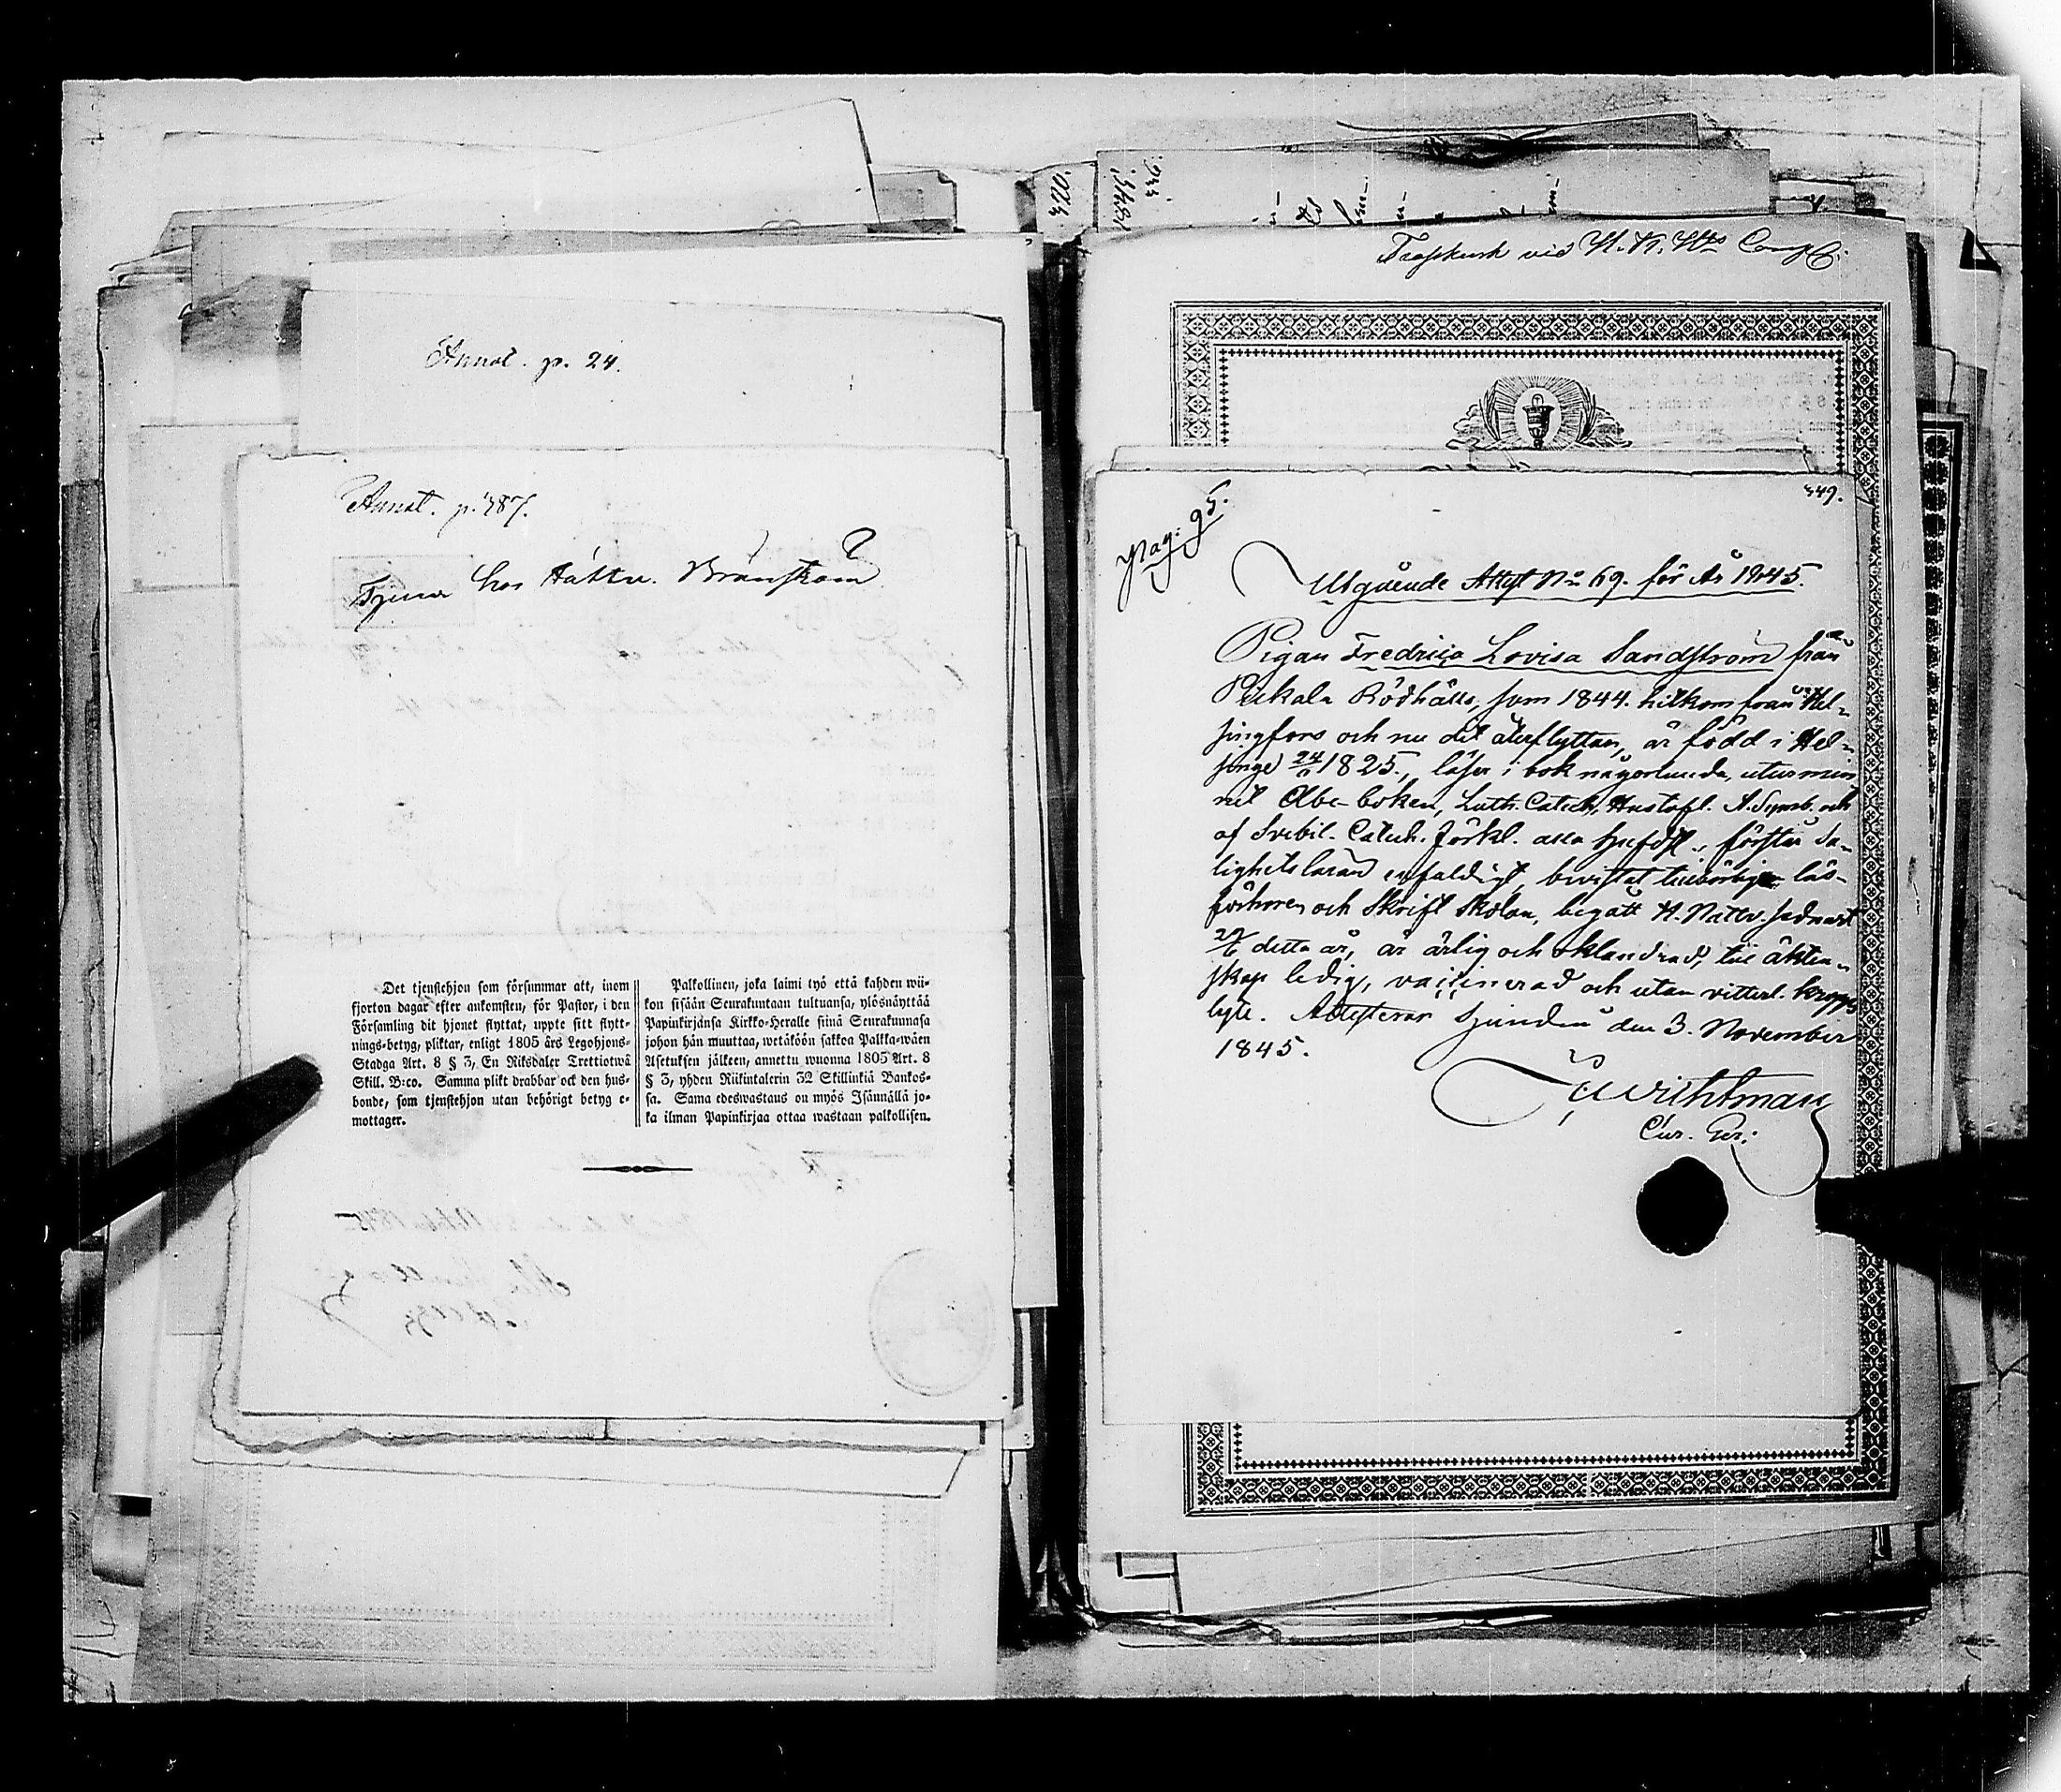 Annot. p. 24.
Annot. p. 487.
Tjenar hos
Det tjenstehjon som försummar att, inom
fjorton dagar efter ankomsten, för Pastor, i den
Församling dit hjonet flyttat, uppte sitt flytt-
nings-betyg, pliktar, enligt 1805 års Legohjons-
Stadga Art. 8 § 3, En Riksdaler Trettiotwå
Skill. B:co. Samma plikt drabbar ock den hus-
bonde, som tjenstehjon utan behörigt betyg e-
mottager.
Palkollinen, joka laimi lyö että kahden wii-
kon sisään Seurakuntaan tultuansa, ylösnäyttää
Papinkirjansa Kirkko-Herralle siinä Seurakunnasa
johon hän muuttaa, wetäköön sakkoa Palkka-wäen
Asetuksen jälkeen, annettu wuonna 1805 Art. 8
§ 3, yhden Riikintalerin 32 Skillinkiä Bankos-
sa. Sama edeswastaus on myös Isännällä jo-
ka ilman Papinkirjaa ottaa wastaan palkollisen.
vid
349.
Pag: 95.
Utgående Attest No 69. för År 1845.
Pigan Fredrica Lovisa Sandström från
Pickala Rödhälls, som 1844. hitkom från Hel-
singfors och nu dit återflyttar, är född i Hel-
singe 1825., läser i bok någorlunda, utur min
net Abc-boken, Luth. Catech. Hustafl. A. Symb. och
af Svebil. Catech. förkl. alla hufdst., förstår Sa-
lighetsläran enfaldigt, bevistat tillbörligen läs-
förhören och Skrift Skolan, begått H. Nattv. sednast
detta år, är ärlig och oklandrad, till äkten-
skap ledig, vaccinerad och utan vitterl. kropps
lyte. Attesterar Sjundeå den 3. November
1845.